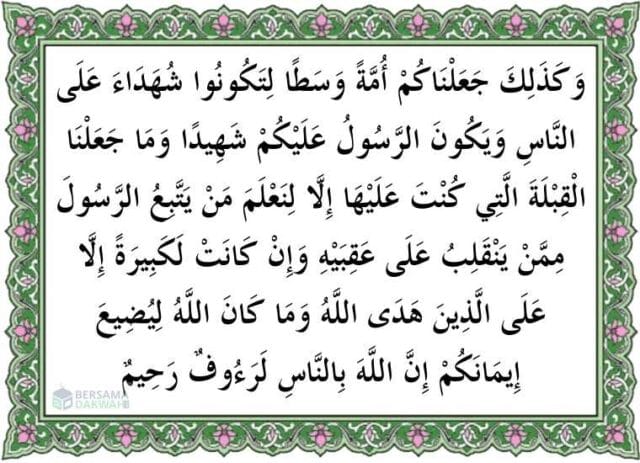 وَكَذَلِكَ جَعَلْنَاكُمْ أُمَّةً وَسَطًا لِتَكُونُوا شُهَدَاءَ عَلَى
النَّاسِ وَيَكُونَ الرَّسُولُ عَلَيْكُمْ شَهِيدًا وَمَا جَعَلْنَا
الْقِبْلَةَ الَّتِي كُنْتَ عَلَيْهَا إِلَّا لِنَعْلَمَ مَنْ يَتَّبِعُ الرَّسُولَ
مِمَّنْ يَنْقَلِبُ عَلَى عَقِبَيْهِ وَإِنْ كَانَتْ لَكَبِيرَةً إِلَّا
عَلَى الَّذِينَ هَدَى اللَّهُ وَمَا كَانَ اللَّهُ لِيُضِيعَ
إِيمَانَكُمْ إِنَّ اللَّهَ بِالنَّاسِ لَرَءُوفٌ رَحِيمٌ
BERSAMA
DAKWAH